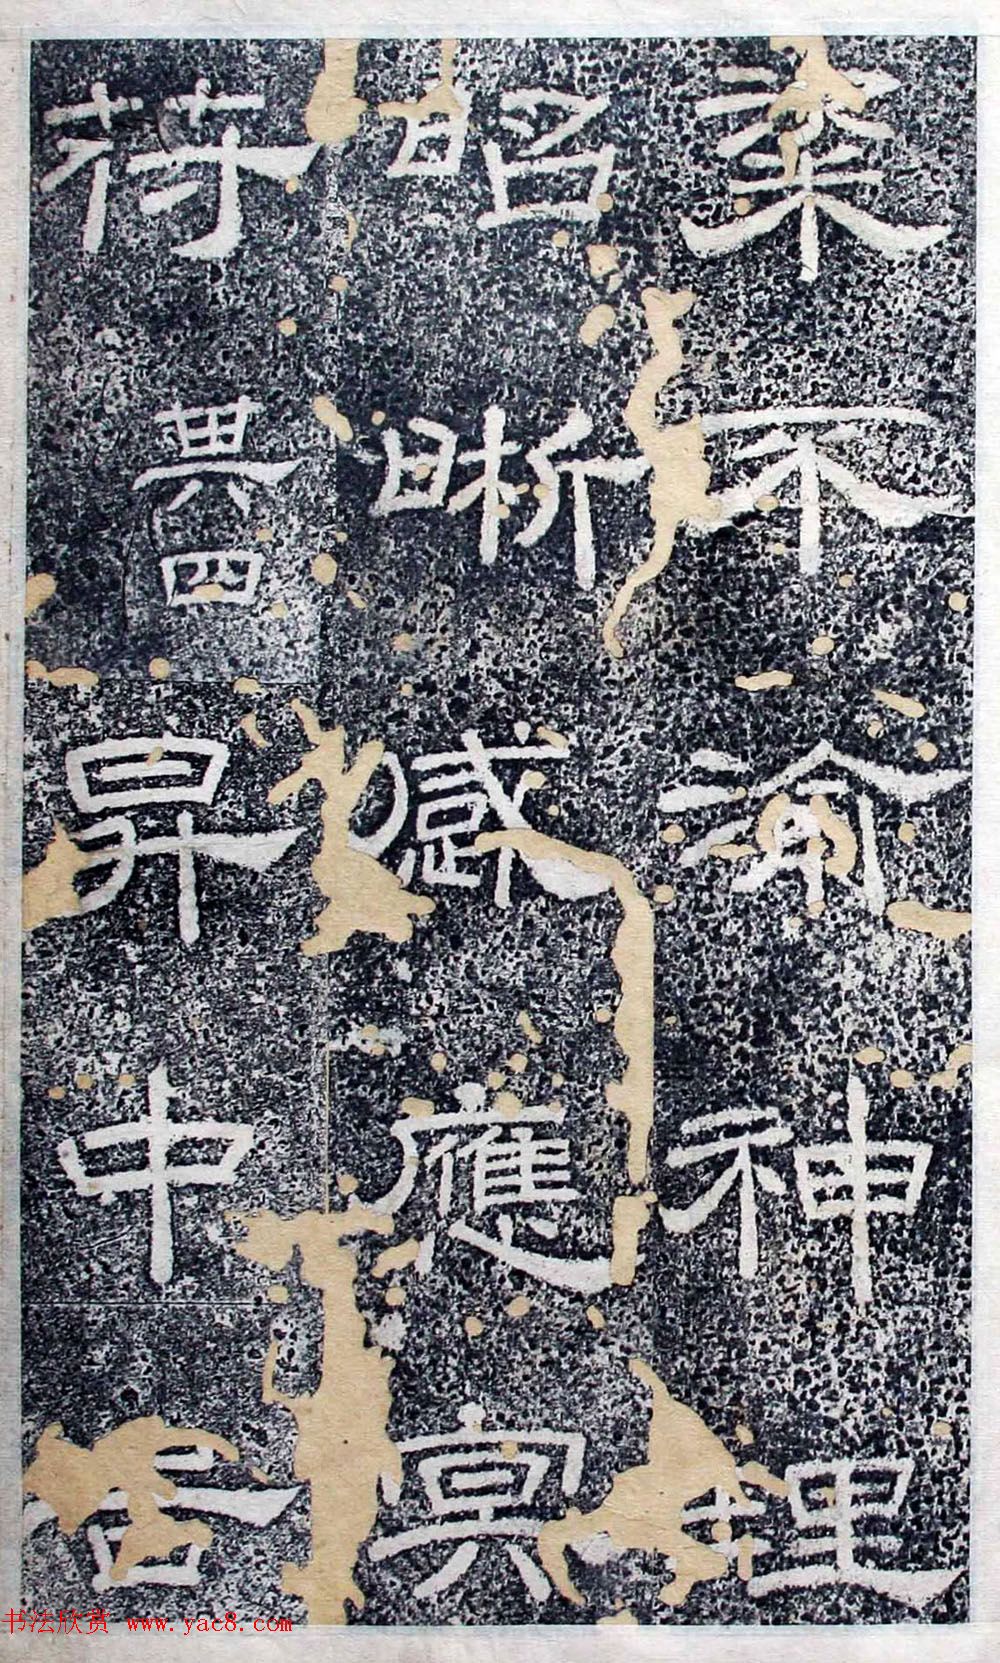 不渝神理
昭晰感應冥
符其四昇中告
书法欣赏 www.yac8.com